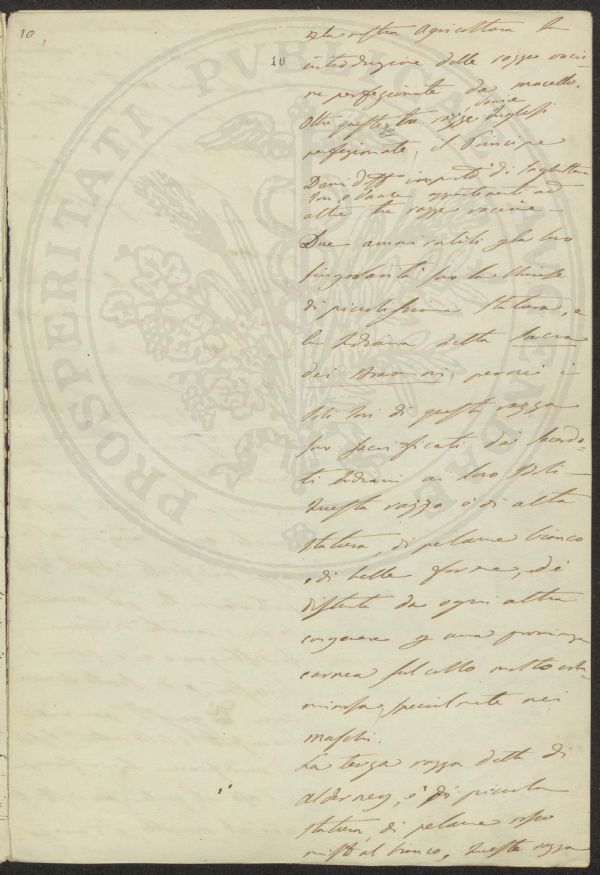 10,
10
alla nostra Agricoltura la
introduzione delle razze vacci-
ne perfezionate da macello.
bovine
Oltre queste tre razze Inglesi
perfezionate, il Principe
Demidoff importò d'Inghilterra
Tori e Vacche appartenenti ad
altre tre razze vaccine -
Due ammirabili p la loro
singolarità sono la Chinese
di piccolissima statura, e
la Indiana detta Sacra
dei Bramini, perocché i
Tori di questa razza
son sacrificati dai Sacerdo-
ti Indiani ai loro Idoli -
Questa razza è di alta
statura, di pelame bianco
e di belle forme, ed è
distinta da ogni altra
congenere p una prominenza
carnea sul collo molto volu-
minosa specialmente nei
maschi.
La terza razza detta di
Alderney, è di piccola
statura, di pelame rosso
misto al bianco, questa razza
PROSPERITATI PUBLICAE AUGENDAE